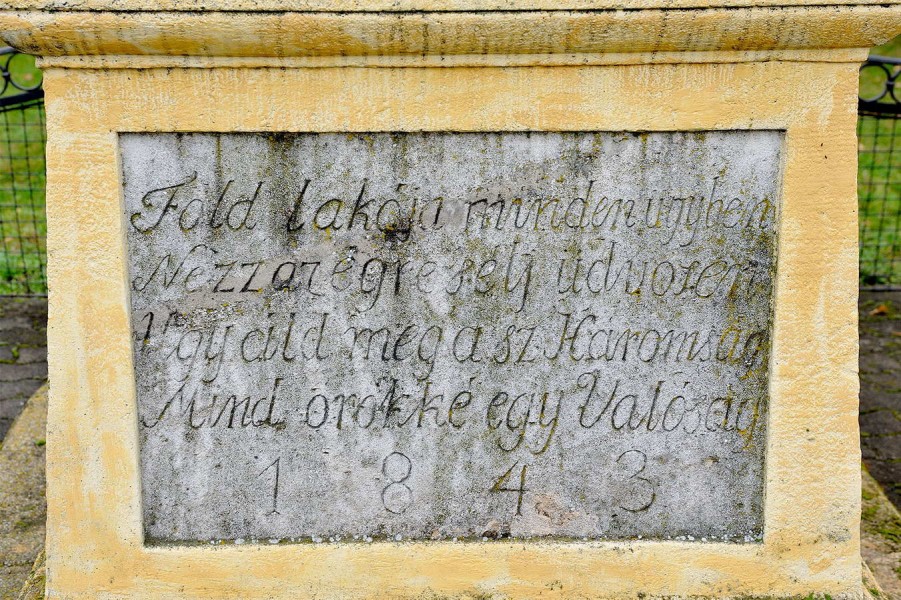 Föld lakója mindenugyben
Nézzazégre s élj üdvösen
Ugy áld meg a sz Háromság
Mind örökké egy Valóság
1843